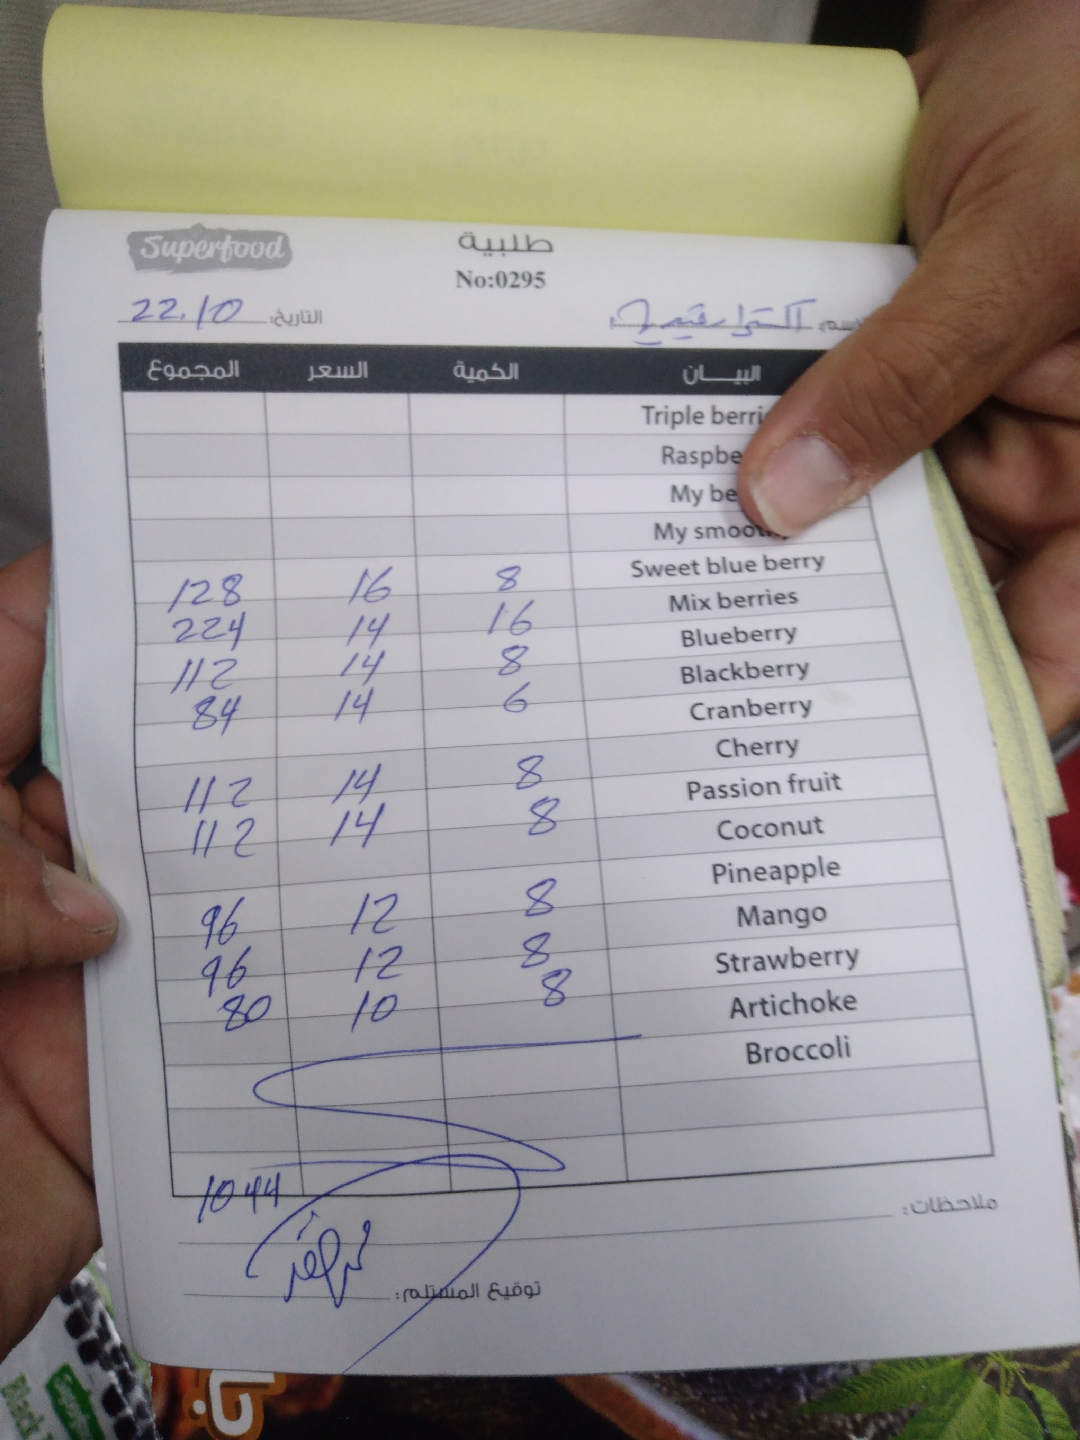 Superfood
طلبية
No:0295
التاريخ: 22.10
البيـــان الكمية السعر المجموع
Triple berri
Raspbe
My be
My smooth
Sweet blue berry 8 16 128
Mix berries 16 14 224
Blueberry 8 14 112
Blackberry 6 14 84
Cranberry
Cherry 8 14 112
Passion fruit 8 14 112
Coconut
Pineapple 8 12 96
Mango 8 12 96
Strawberry 8 10 80
Artichoke
Broccoli
1044
ملاحظات:
توقيع المستلم: